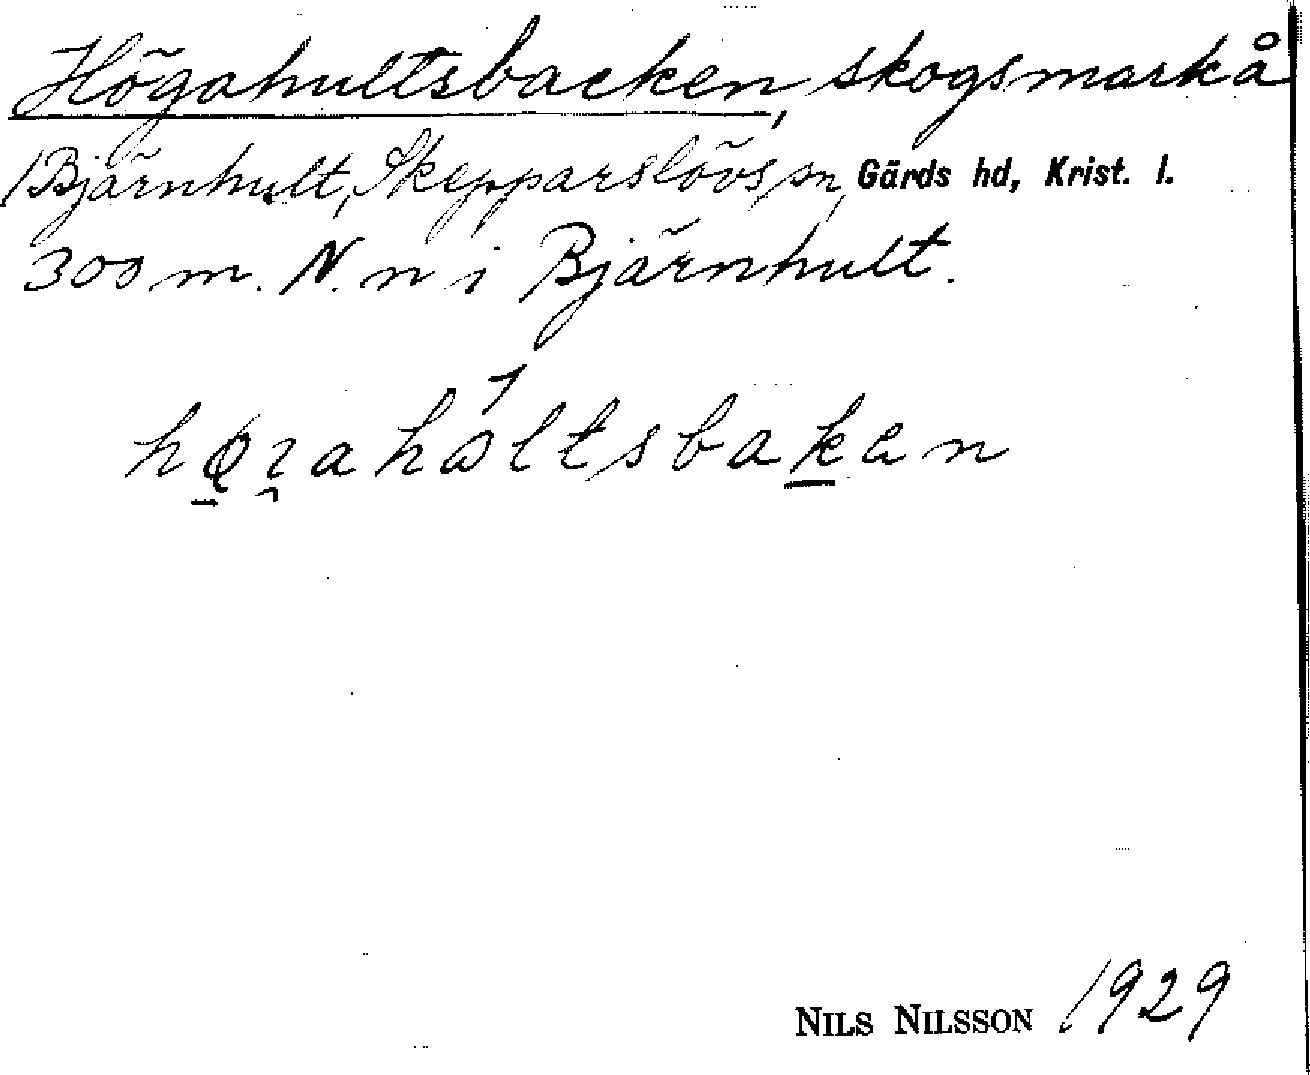 Högahultsbacken, skogsmark å
Bjärnhult, Skepparslövs sn, Gärds hd, Krist. l.
300 m. N. n i Bjärnhult.
hø̠ɿ̯ahál̇tsbak̠en
NILS NILSSON 1929